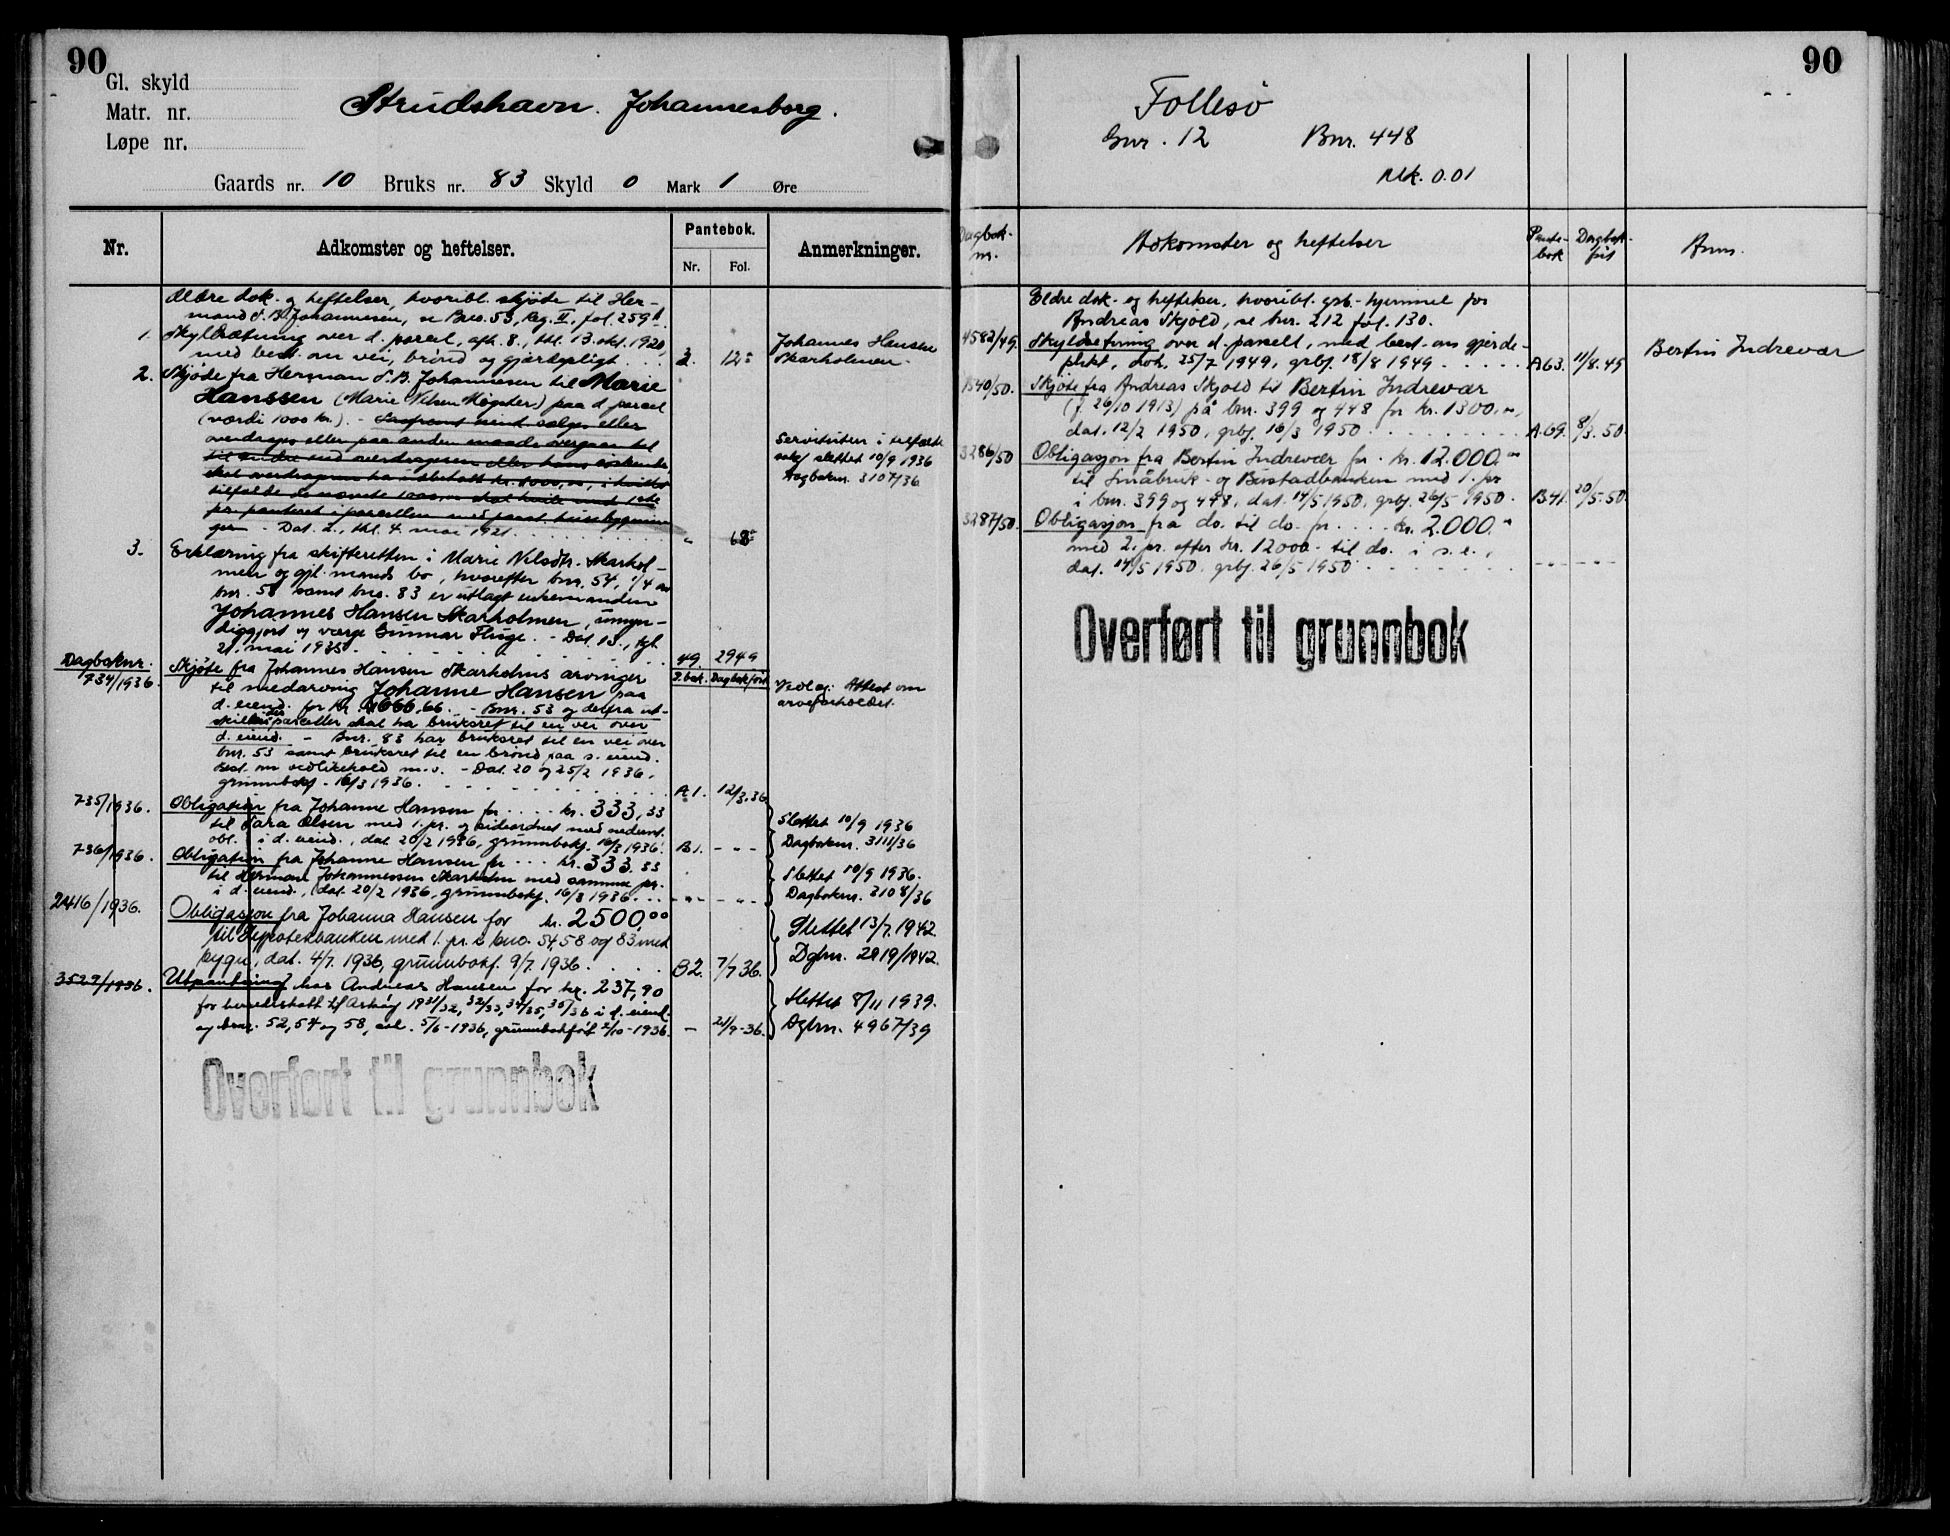 90
Gl. skyld
Matr. nr.
Løpe nr.
Strudshavn. Johannesborg.
Gaards nr. 10 Bruks nr. 83 Skyld 0 Mark 1 Øre
Nr. Adkomster og heftelser. Pantebok. Nr. Fol. Anmerkninger.
Ældre dok. og heftelser, hvoribl. skjøte til Her-
mand S. B. Johannesen, se Bno. 53, Reg. II, fol. 259
1. Skyldsætning over d. parcel, afh. 8., thl. 13. okt. 1920,
med best. om vei, brønd og gjærdepligt . . 2. 12
Johannes Hansen
Skarholmen.
2. Skjøde fra Herman S. B. Johannesen til Marie
Hanssen (Marie Nilsen Møgster) paa d. parcel
(værdi 1000 kr.). - Saafremt mind. sælges eller
overdrages eller paa anden maade overgaar til
til andre end overdrageren eller hans
skal overdrageren ha utbetalt kr. 1000,00, i hvilket
tilfælde de nævnte 1000,00 skal hvile med 1ste
pr. panteret i parcellen med paast. husebygnin-
ger. - Dat. 2., thl. 4. mai 1921. . . . . . " 68
Servituten i
slettet 10/9 1936
Dagboknr. 3107/36
3. Erklæring fra skifteretten i Marie Nilsdtr. Skarhol-
men og gjl. mands bo, hvorefter bnr. 54, 1/4 av
bnr. 58 samt bno. 83 er utlagt enkemanden
Johannes Hansen Skarholmen, umyn-
diggjort og værge Gunnar Fluge. - Dat. 13., tgl.
21. mai 1935. . . . . 49. 2949
Dagboknr. P.bok. Dagbokført
734/1936. Skjøte fra Johannes Hansen Skarholms arvinger
til medarving Johanne Hansen paa
d. eiend. for kr. 1666,66. - Bnr. 53 og derfra ut-
skilte parceller skal ha bruksret til en vei over
d. eiend. - Bnr. 83 har bruksret til en vei over
bnr. 53 samt bruksret til en brønd paa s. eiend.
Best. om vedlikehold m.v. - Dat. 20 og 25/2 1936,
grunnbokf. 16/3 1936. . . . . A1. 12/3.36
Vedlag: Attest om
arveforholdet.
735/1936. Obligation fra Johanne Hansen for . . . . kr. 333,33
til Sara Olsen med 1. pr. og sideordnet med nedenst.
obl. i d. eiend., dat. 20/2 1936, grunnbokf. 16/3 1936. B1. - - -
Slettet 10/9 1936
Dagboknr. 3111/36
736/1936. Obligation fra Johanne Hansen for . . . kr. 333,33
til Herman Johannessen Skarholm med samme pr.
i d. eiend., dat. 20/2 1936, grunnbokf. 16/3 1936. . . - " - - " -
Slettet 10/9 1936.
Dagboknr. 3108/36
2416/1936. Obligasjon fra Johanna Hansen for kr. 2500,00
til Hypotekbanken med 1. pr. i bno. 54, 58 og 83 med
bygn., dat. 4/7. 1936, grunnbokf. 9/7. 1936. . . . . B2. 7/7 36.
Slettet 13/7. 1942.
Dgbnr. 2819/1942.
3527/1936. Utpantning hos Andreas Hansen for kr. 237,90
for herredskatt til Askøy 1931/32, 32/33, 34/35, 35/36 i d. eiend.
og bnr. 52, 54 og 58, avh. 5/6-1936, grunnbokført 2/10-1936. - 21/9-36.
Slettet 8/11 1939.
Dgbnr. 4967/39
Overført til grunnbok
90
Follesø
Gnr. 12 Bnr. 448
Mk. 0.01
Dagbok-
nr. Adkomster og heftelser Pante-
bok Dagbok-
ført Anm.
Eldre dok. og heftelser, hvoribl. grb.-hjemmel for
Andreas Skjold, se bnr. 212 fol. 130.
4582/49. Skyldsetning over d. parsell, med best. om gjerde-
plikt, avh. 25/7 1949, grbf. 18/8 1949 . . . . . A63. 11/8.49
Bertin Indrevær
1340/50. Skjøte fra Andreas Skjold til Bertin Indrevær
(f. 26/10 1913) på bnr. 399 og 448 for kr. 1300,00,
dat. 12/2 1950, grbf. 16/3 1950 . . . . . . . . A.69. 8/3. 50.
3286/50 Obligasjon fra Bertin Indrevær for . kr. 12.000.00
til Småbruk- og Bustadbanken med 1. pr.
i bnr. 399 og 448, dat. 14/5 1950, grbf. 26/5 1950. B41. 20/5-50.
3287/50. Obligasjon fra do. til do. for . . . . kr. 2.000.00
med 2. pr. efter kr. 12000.- til do. i s. e.,
dat. 14/5 1950, grbf. 26/5 1950 . . . . . . . - - - - " - -
Overført til grunnbok